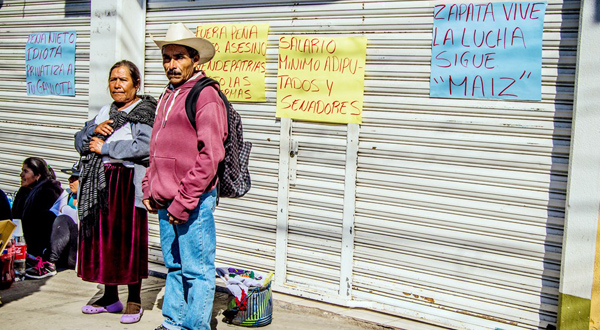 PEÑA NIETO
IDIOTA
PRIVATIZA A
TU
FUERA PEÑA
ASESINO
VENDEPATRIAS
LAS
SALARIO
MINIMO A DIPU-
TADOS Y
SENADORES
ZAPATA VIVE
LA LUCHA
SIGUE
"MAIZ"